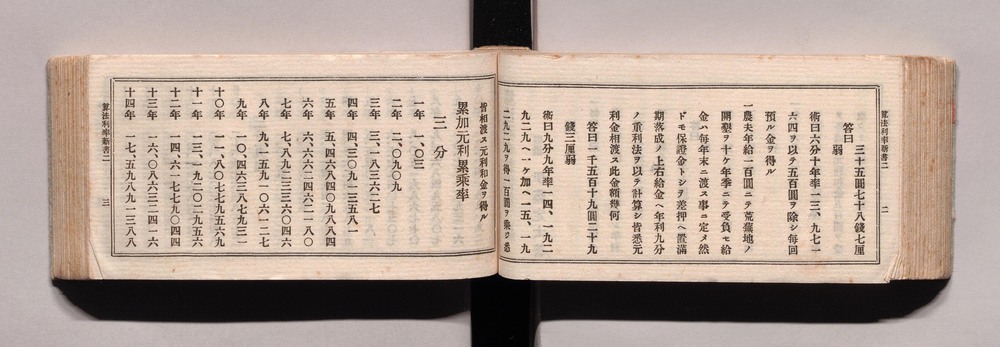 算法利率新書二 二
答曰 三十五圓七十八錢七厘
弱
術曰六分十年率一三、九七一
六四ヲ以テ五百圓ヲ除シ毎回
預ル金ヲ得ル
一農夫年給一百圓ニテ荒蕪地ノ
開墾ヲ十ケ年季ニテ受負モ給
金ハ毎年末ニ渡ス事ニ定メ然
ドモ保證金トシヲ差押ヘ置滿
期落成ノ上右給金ヘ年利九分
ノ重利法ヲ以テ計算シ皆悉元
利金相渡ス此金額得何
答曰一千五百十九圓二十九
錢三厘弱
術曰九分九年率一四、一九二
九二九ヘ一ケ加ヘ一五、一九
二九二九ヲ得一百圓ヲ乘ジ悉
皆相渡ス元利和金ヲ得ル
累加元利累乘率
三分
一年 一、〇三
二年 二、〇九〇九
三年 三、一八三六二七
四年 四、三〇九一三五八一
五年 五、四六八四〇九八八四
六年 六、六六二四六二一八〇
七年 七、八九二三三六〇四六
八年 九、一五九一〇六一二七
九年 一〇、四六三八七九三一
十〇年 一一、八〇七七九五六九
十一年 一三、一九二〇二九五六
十二年 一四、六一七七九〇四四
十三年 一六、〇八六三二四一六
十四年 一七、五九八九一三八八
算法利率新書二 三